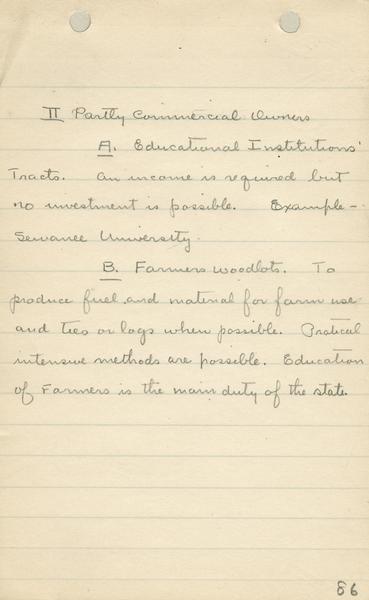 II Partly Commercial Owners
A. Educational Institutions'
Tracts. An income is required but
no investment is possible. Example -
Sewanee University.
B. Farmers woodlots. To
produce fuel and material for farm use
and ties or logs when possible. Pratical
intensive methods are possible. Education
of Farmers is the main duty of the state.
86